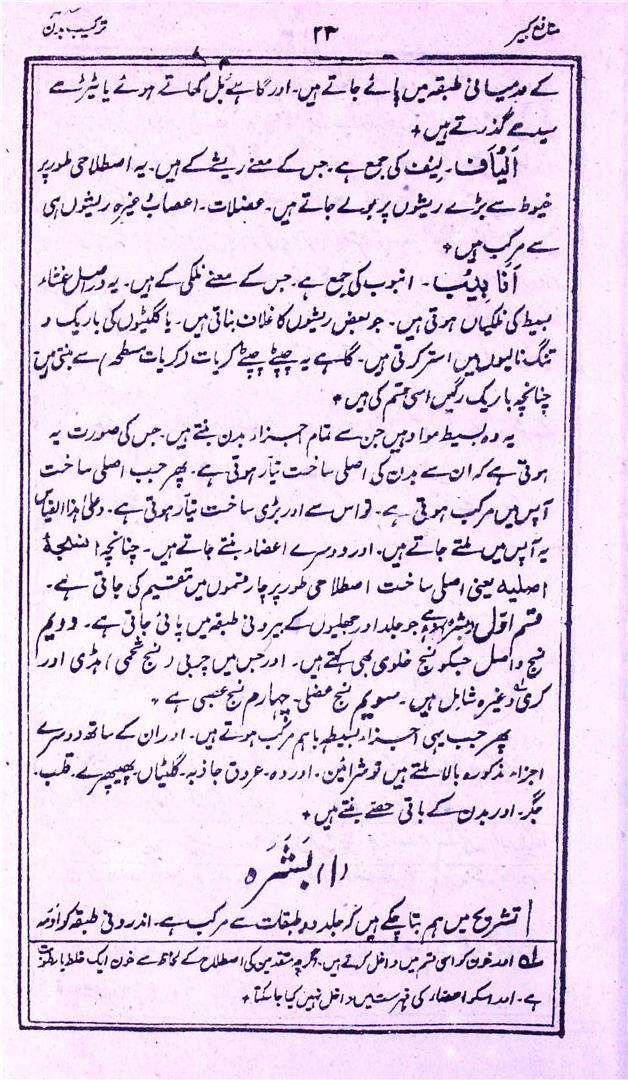 منافع کبیر
۲۳
ترکیب بدن
کے درمیانی طبقہ میں پائے جاتے ہیں۔ اور گاہے بل کھاتے ہوئے یا تیرتے
سیدھے گذرتے ہیں +
اَلیَاف۔ لیف کی جمع ہے۔ جس کے معنے ریشے کے ہیں۔ یہ اصطلاحی طور پر
خیوط سے بڑے ریشوں پر بولے جاتے ہیں۔ عضلات۔ اعصاب وغیرہ ریشوں ہی
سے مرکب ہیں +
اَنَابِیب۔ انبوب کی جمع ہے جس کے معنے نلکی کے ہیں۔ یہ دراصل غشاء
بسیط کی نلکیاں ہوتی ہیں۔ جو بعض ریشوں کا غلاف بناتی ہیں۔ یا گلٹیوں کی باریک و
تنگ نالیوں میں استر کرتی ہیں۔ گاہے یہ چپٹے چپٹے کریات (کریات مسطحہ) سے بنتی ہیں
چنانچہ باریک رگیں اسی قسم کی ہیں +
یہ وہ بسیط مواد ہیں جن سے تمام اجزاء بدن بنتے ہیں۔ جس کی صورت یہ
ہوتی ہے کہ ان سے بدن کی اصلی ساخت تیار ہوتی ہے۔ پھر جب اصلی ساخت
آپس میں مرکب ہوتی ہے۔ تو اس سے اور بڑی ساخت تیار ہوتی ہے۔ وعلیٰ ہذا القیاس
یہ آپس میں ملتے جاتے ہیں۔ اور دوسرے اعضاء بنتے جاتے ہیں۔ چنانچہ انسجۂ
اصلیہ یعنی اصلی ساخت اصطلاحی طور پر چار قسموں میں تقسیم کی جاتی ہے۔
قسم اول بشرہ ہے جو جلد اور جھلیوں کے بیرونی طبقہ میں پائی جاتی ہے۔ دویم
نسج واصل جسکو نسج خلوی بھی کہتے ہیں۔ اور جس میں چربی (نسج شحمی) ہڈی اور
کری وغیرہ شامل ہیں۔ سویم نسج عضلی۔ چہارم نسج عصبی ہے۔
پھر جب یہی اجزاء بسیطہ باہم مرکب ہوتے ہیں۔ اور ان کے ساتھ دوسرے
اجزاء مذکورہ بالا ملتے ہیں تو شرائین۔ اوردہ۔ عروق جاذبہ۔ گلٹیاں۔ پھیپھڑے۔ قلب۔
جگر۔ اور بدن کے باقی حصے بنتے ہیں +
(۱) بَشَرَہ
تشریح میں ہم بتا چکے ہیں کہ جلد دو طبقات سے مرکب ہے۔ اندرونی طبقہ کو اَدَمہ
لہ اور خون کو اسی قسم میں داخل کرتے ہیں۔ اگرچہ متقدمین کی اصطلاح کے لحاظ سے خون ایک خلط یا رطوبت
ہے۔ اور اسکو اعضاء کی فہرست میں داخل نہیں کیا جا سکتا +